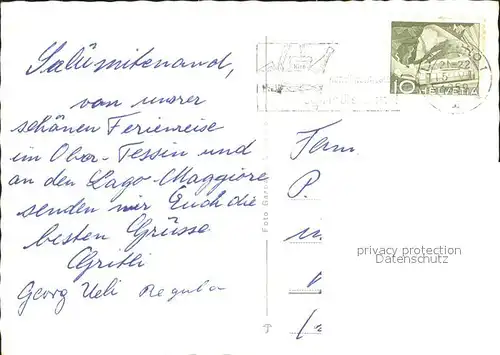 Salümitenand,
von unsrer
schönen Ferienreise
im Ober-Tessin und
an den Lago-Maggiore
senden wir Euch die
besten Grüsse
Gritli
Georg Ueli Regula
Fam.
P.
10
HELVETIA
privacy protection
Datenschutz